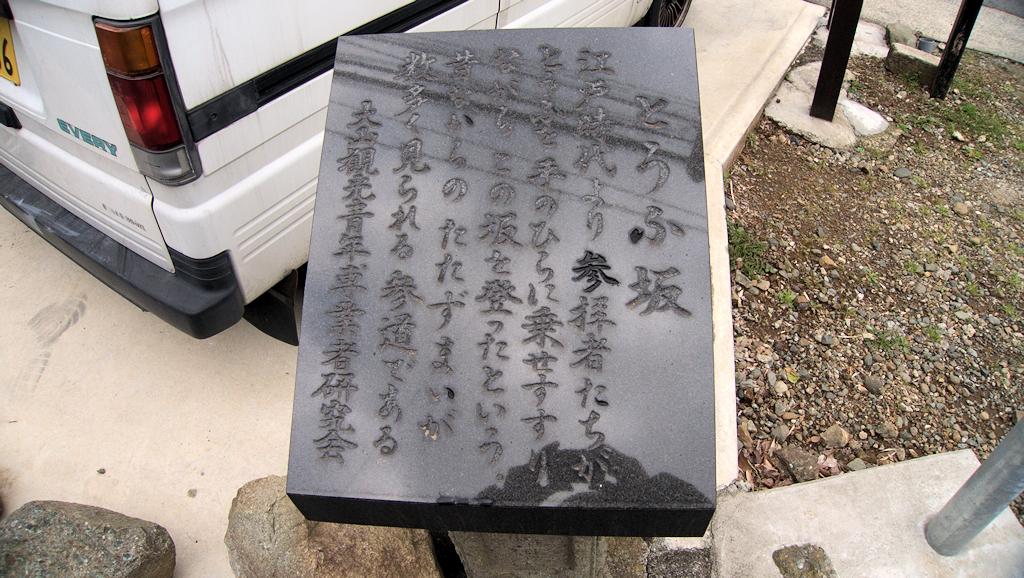 とうふ坂
江戸時代より参拝者たちが
とうふを手のひらに乗せすすり
ながら この坂を登ったという。
昔ながらの たたずまいが
数多く見られる 参道である
大山観光青年専業者研究会
EVERY
6